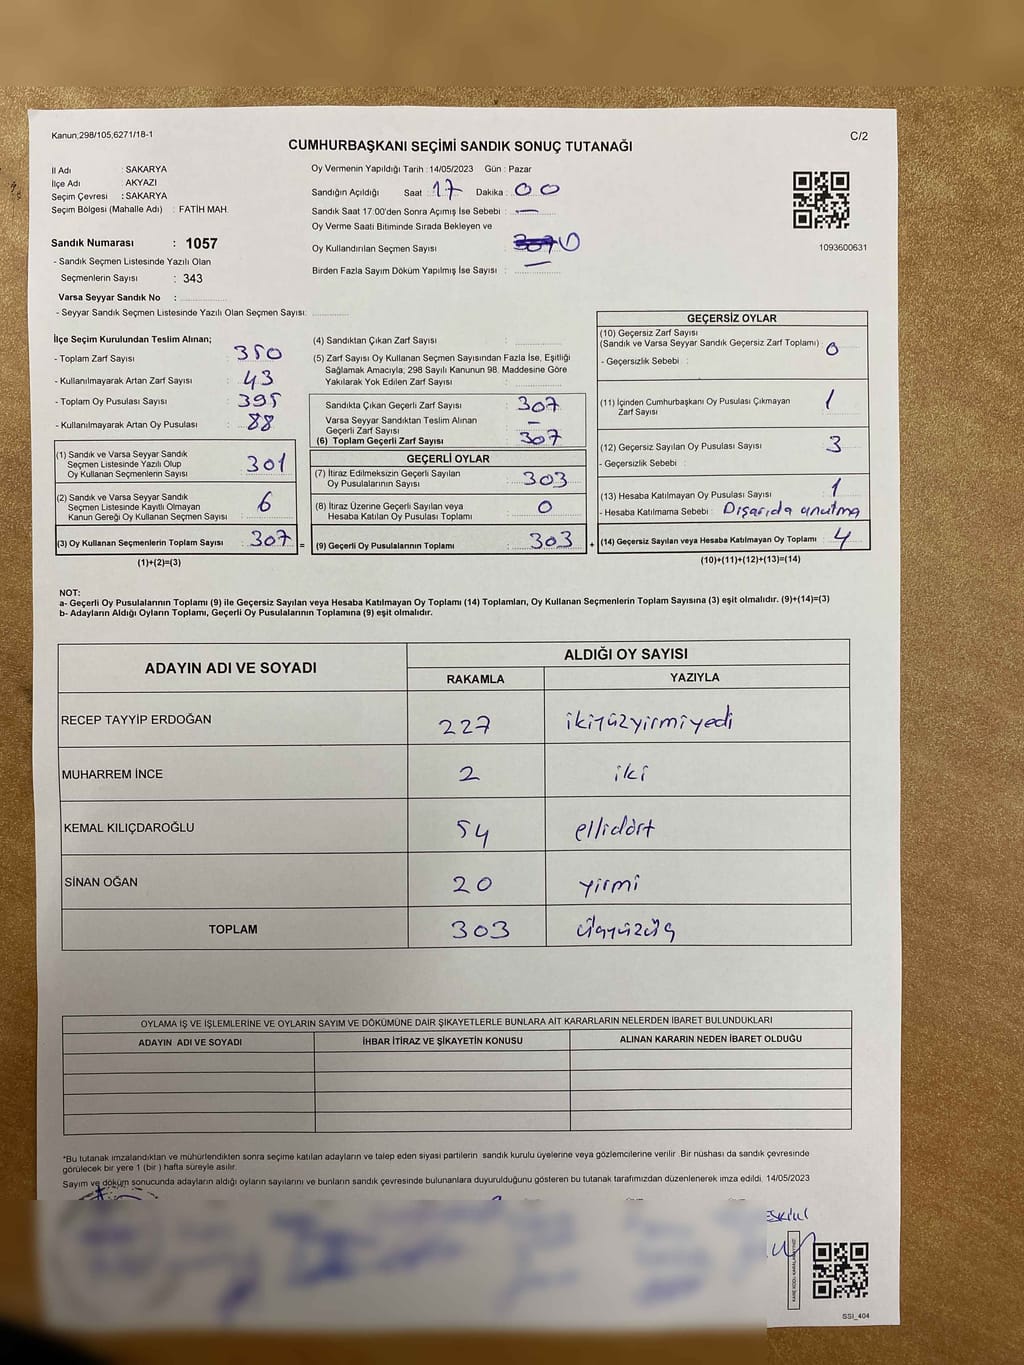 Kanun;298/105,6271/18-1
C/2
CUMHURBAŞKANI SEÇİMİ SANDIK SONUÇ TUTANAĞI
İl Adı : SAKARYA
İlçe Adı : AKYAZI
Seçim Çevresi : SAKARYA
Seçim Bölgesi (Mahalle Adı) : FATİH MAH.
Oy Vermenin Yapıldığı Tarih :14/05/2023 Gün : Pazar
Sandığın Açıldığı Saat : 17 Dakika : 00
Sandık Saat 17:00'den Sonra Açımış İse Sebebi : —
Oy Verme Saati Bitiminde Sırada Bekleyen ve
Oy Kullandırılan Seçmen Sayısı 0
Birden Fazla Sayım Döküm Yapılmış İse Sayısı : —
1093600631
Sandık Numarası : 1057
- Sandık Seçmen Listesinde Yazılı Olan
Seçmenlerin Sayısı : 343
Varsa Seyyar Sandık No :
- Seyyar Sandık Seçmen Listesinde Yazılı Olan Seçmen Sayısı:
İlçe Seçim Kurulundan Teslim Alınan;
- Toplam Zarf Sayısı : 350
- Kullanılmayarak Artan Zarf Sayısı : 43
- Toplam Oy Pusulası Sayısı : 395
- Kullanılmayarak Artan Oy Pusulası : 88
(1) Sandık ve Varsa Seyyar Sandık
Seçmen Listesinde Yazılı Olup
Oy Kullanan Seçmenlerin Sayısı : 301
(2) Sandık ve Varsa Seyyar Sandık
Seçmen Listesinde Kayıtlı Olmayan
Kanun Gereği Oy Kullanan Seçmen Sayısı : 6
(3) Oy Kullanan Seçmenlerin Toplam Sayısı : 307 =
(1)+(2)=(3)
(4) Sandıktan Çıkan Zarf Sayısı :
(5) Zarf Sayısı Oy Kullanan Seçmen Sayısından Fazla İse, Eşitliği
Sağlamak Amacıyla; 298 Sayılı Kanunun 98. Maddesine Göre
Yakılarak Yok Edilen Zarf Sayısı :
Sandıkta Çıkan Geçerli Zarf Sayısı : 307
Varsa Seyyar Sandıktan Teslim Alınan
Geçerli Zarf Sayısı : —
(6) Toplam Geçerli Zarf Sayısı : 307
GEÇERLİ OYLAR
(7) İtiraz Edilmeksizin Geçerli Sayılan
Oy Pusulalarının Sayısı : 303
(8) İtiraz Üzerine Geçerli Sayılan veya
Hesaba Katılan Oy Pusulası Toplamı : 0
(9) Geçerli Oy Pusulalarının Toplamı : 303 +
GEÇERSİZ OYLAR
(10) Geçersiz Zarf Sayısı
(Sandık ve Varsa Seyyar Sandık Geçersiz Zarf Toplamı) : 0
- Geçersizlik Sebebi :
(11) İçinden Cumhurbaşkanı Oy Pusulası Çıkmayan
Zarf Sayısı : 1
(12) Geçersiz Sayılan Oy Pusulası Sayısı : 3
- Geçersizlik Sebebi :
(13) Hesaba Katılmayan Oy Pusulası Sayısı : 1
- Hesaba Katılmama Sebebi : Dışarıda unutma
(14) Geçersiz Sayılan veya Hesaba Katılmayan Oy Toplamı : 4
(10)+(11)+(12)+(13)=(14)
NOT:
a- Geçerli Oy Pusulalarının Toplamı (9) ile Geçersiz Sayılan veya Hesaba Katılmayan Oy Toplamı (14) Toplamları, Oy Kullanan Seçmenlerin Toplam Sayısına (3) eşit olmalıdır. (9)+(14)=(3)
b- Adayların Aldığı Oyların Toplamı, Geçerli Oy Pusulalarının Toplamına (9) eşit olmalıdır.
ADAYIN ADI VE SOYADI
ALDIĞI OY SAYISI
RAKAMLA YAZIYLA
RECEP TAYYİP ERDOĞAN 227 ikiyüzyirmiyedi
MUHARREM İNCE 2 iki
KEMAL KILIÇDAROĞLU 54 ellidört
SİNAN OĞAN 20 yirmi
TOPLAM 303 üçyüzüç
OYLAMA İŞ VE İŞLEMLERİNE VE OYLARIN SAYIM VE DÖKÜMÜNE DAİR ŞİKAYETLERLE BUNLARA AİT KARARLARIN NELERDEN İBARET BULUNDUKLARI
ADAYIN ADI VE SOYADI İHBAR İTİRAZ VE ŞİKAYETİN KONUSU ALINAN KARARIN NEDEN İBARET OLDUĞU
*Bu tutanak imzalandıktan ve mühürlendikten sonra seçime katılan adayların ve talep eden siyasi partilerin sandık kurulu üyelerine veya gözlemcilerine verilir .Bir nüshası da sandık çevresinde
görülecek bir yere 1 (bir ) hafta süreyle asılır.
Sayım ve döküm sonucunda adayların aldığı oyların sayılarını ve bunların sandık çevresinde bulunanlara duyurulduğunu gösteren bu tutanak tarafımızdan düzenlenerek imza edildi. 14/05/2023
SSI_404